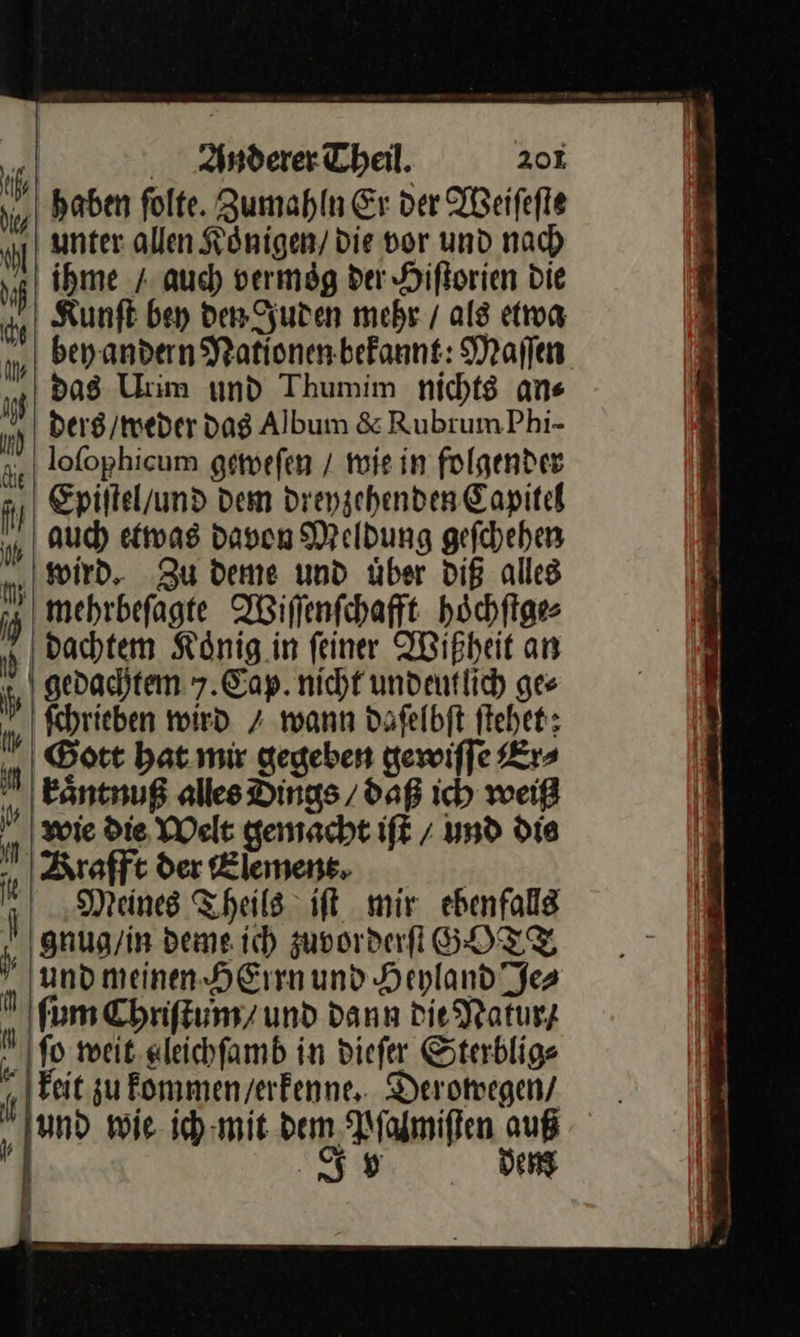 Anderer Theil. 201
haben ſolte. Zumahln Er der Weiſeſte
unter allen Koͤnigen/ die vor und nach
ihme / auch vermoͤg der Hiſtorien die
Kunſt bey den Juden mehr / als etwa
bey andern Nationen bekannt: Maſſen
das Urim und Thumim nichts an⸗
ders/weder das Album & Rubrum Phi-
loſophicum geweſen / wie in folgender
Epiſtel/und dem dreyzehenden Capitel
auch etwas davon Meldung geſchehen
wird. Zu deme und uͤber diß alles
mehrbeſagte Wiſſenſchafft hoͤchſtge⸗
dachtem Koͤnig in ſeiner Wißheit an
gedachtem 7. Cap. nicht undeutlich ge⸗
ſchrieben wird / wann daſelbſt ſtehet:
Gott hat mir gegeben gewiſſe Er⸗
kaͤntnuß alles Dings / daß ich weiß
wie die Welt gemacht iſt / und die
Krafft der Element.
Meines Theils iſt mir ebenfalls
gnug/in deme ich zuvorderſt GOTT
und meinen HErrn und Heyland Je⸗
ſum Chriſtum/ und dann die Natur/
ſo weit gleichſamb in dieſer Sterblig⸗
keit zu kommen/erkenne. Derowegen/
und wie ich mit dem Pſalmiſten auß
J v dem